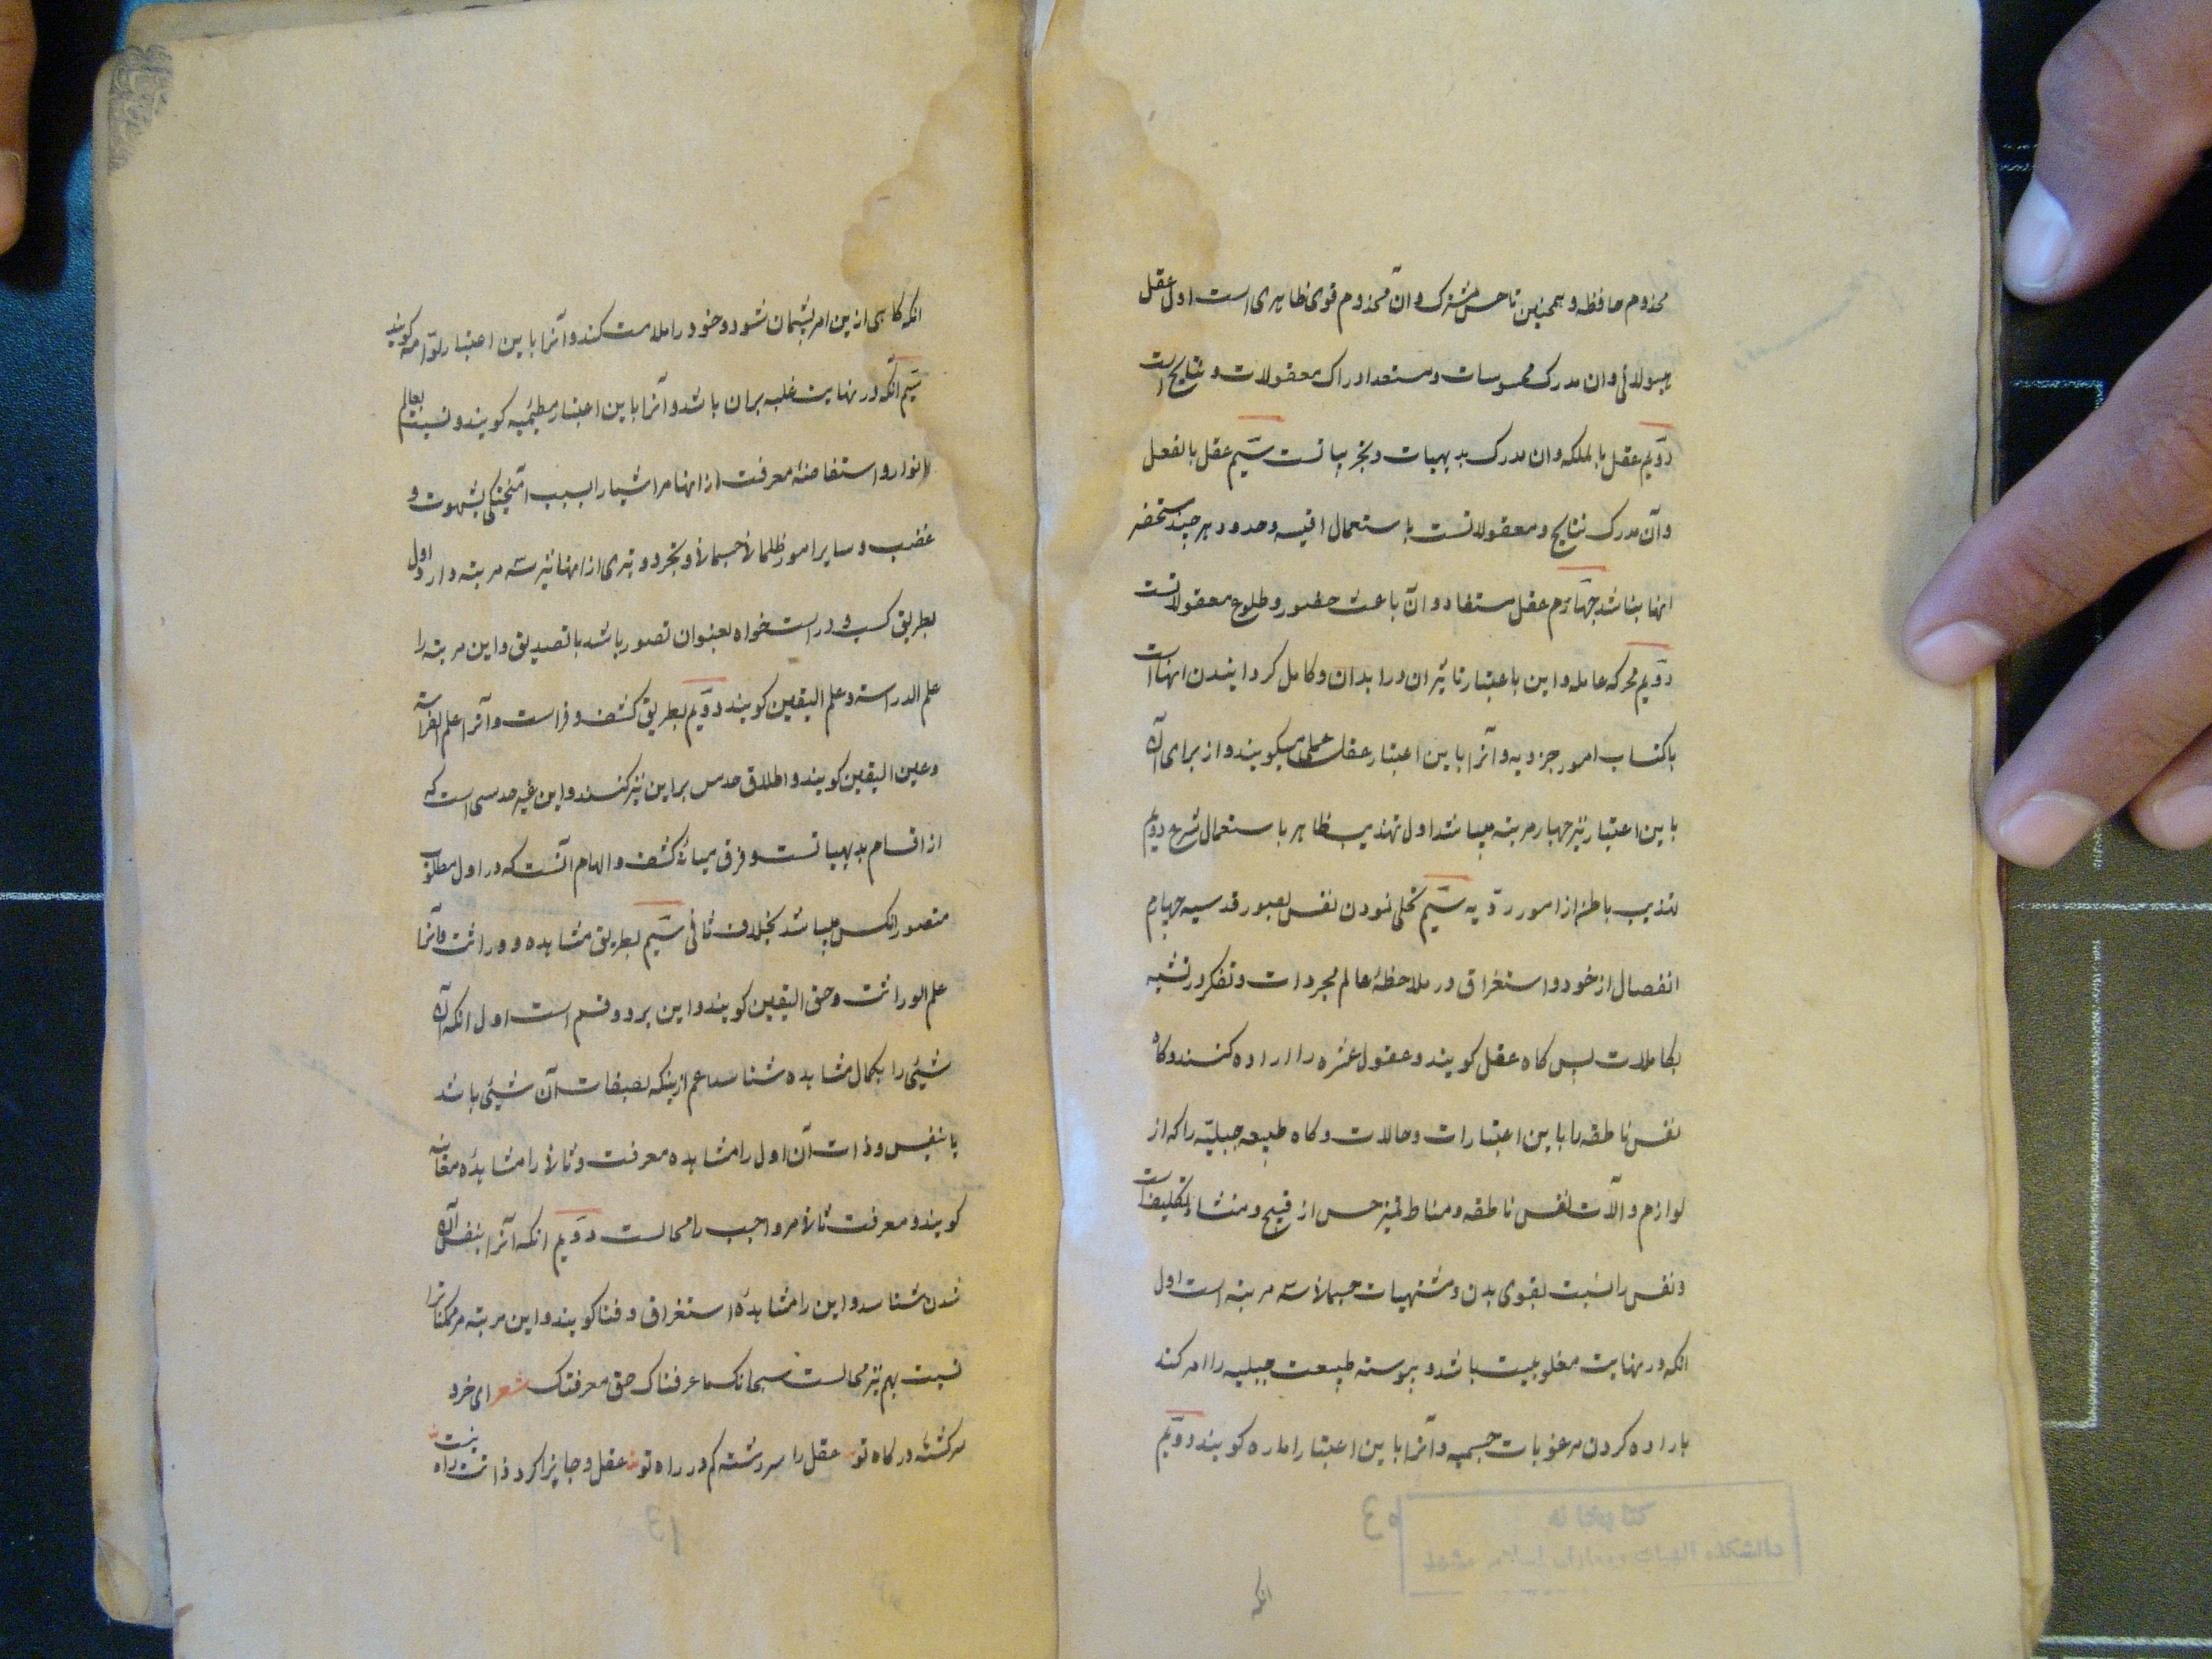 مخذوم حافظه و همچنین تا حس مشترک و آن مخذوم قوی ظاهری است اول عقل
هیولائی و ان مدرک محسوسات و مستعد ادراک معقولات و نتایج است
دویم عقل بالملکه و ان مدرک بدیهیات و تجربیاتست سیم عقل بالفعل
و آن مدرک نتایج و معقولاتست باستعمال اقیسه و حدود هر چند مستحضر
انها نباشد چهارم عقل مستفاد و آن باعث حضور و طلوع معقولاتست
دویم محرکه عامله و این باعتبار تاثیر ان در ابدان و کامل کردایندن انهاست
باکتساب امور جزویه و آنرا باین اعتبار عقل عملی میکویند و از برای آن
باین اعتبار نیز چهار مرتبه میباشد اول تهذیب ظاهر باستعمال شرع دویم
تهذیب باطن از امور ردّیه سیم تحلی نمودن نفس بصور قدسیه چهارم
انفصال از خود و استغراق در ملاحظهٔ عالم مجردات و تفکر در تشبه
بکاملات پس کاه عقل کویند و عقول عشره را اراده کنند و کاه
نفس ناطقه را باین اعتبارات و حالات و کاه طبیعه جبلیّه را که از
لوازم و آلات نفس ناطقه و مناط تمیز حسن از قبیح و منشاء تکلیفست
و نفس را نسبت بقوی بدن و مشتهیات جسمانی سه مرتبه است اول
انکه در نهایت مغلوبیت باشد و پیوسته طبیعت جبلیه را امر کند
باراده کردن مرغوبات جسمیه و آنرا باین اعتبار اماره کویند دویم
انکه
انکه کاهی ازین امر پشیمان شود و خود را ملامت کند و آنرا باین اعتبار لوّامه کویند
سیم آنکه در نهایت غلبه بران باشد و آنرا باین اعتبار مطمئنه کویند و نسبت بعالم
انوار و استفاضهٔ معرفت از انها مر اشیا را بسبب آمیختکی بشهوت و
غضب و سایر امور ظلمانی جسمانی و تجرد و تبری از انها نیز سه مرتبه دارد اول
بطریق کسب و دراست خواه بعنوان تصور باشد یا تصدیق و این مرتبه را
علم الدراسة و علم الیقین کویند دویم بطریق کشف و فراست و آنرا علم الفراسة
و عین الیقین کویند و اطلاق حدس بر این نیز کنند و این غیر حدسی است که
از اقسام بدیهیاتست و فرق میانهٔ کشف و الهام آنست که در اول مطلوب
متصور انکس میباشد بخلاف ثانی سیم بطریق مشاهده و وراثت و آنرا
علم الوراثت و حق الیقین کویند و این بر دو قسم است اول انکه آن
شیئی را بکمال مشاهده شناسد اعم ازینکه بصفات آن شیئی باشد
یا بنفس و ذات آن اول را مشاهده معرفت و ثانی را مشاهدهٔ معاینه
کویند و معرفت ثانی مر واجب را محالست دویم انکه آنرا بنفس آن
شدن شناسد و این را مشاهدهٔ استغراق و فنا کویند و این مرتبه مر ممکنات را
نسبت بهم نیز محالست سبحانک ما عرفناک حق معرفتک شعر ای خرد
سرکشته درکاه تو عقل را سررشته کم در راه تو عقل و جانرا کرد ذاتت راه نیست